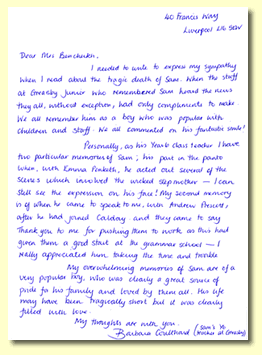 40 Francis Way
Liverpool L16 5EW
Dear Mrs
I needed to write to express my sympathy
when I read about the tragic death of Sam. When the staff
at Greasby Junior who remembered Sam heard the news
they all, without exception, had only compliments to make
We all remember him as a boy who was popular with
children and staff. We all commented on his fantastic smile!
Personally, as his Year 6 class teacher I have
two particular memories of Sam; his part in the panto
when, with Emma Penketh, he acted out several of the
scenes which involved the wicked stepmother – I can
still see the expression on his face! My second memory
is of when he came to speak to me, with Andrew
after he had joined Calday and they came to say
Thank you to me for pushing them to work as this had
given them a good start at the grammar school – I
really appreciated him taking the time and trouble
My overwhelming memories of Sam are of a
very popular boy, who was clearly a great source of
pride to his family and loved by them all. His life
may have been tragically short but it was clearly
filled with love.
My thoughts are with you.
Barbara Coulthard (Sam's Y6
teacher at Greasby)